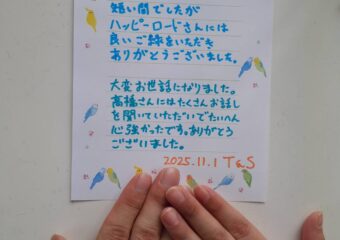 短い間でしたが
ハッピーロードさんには
良いご縁をいただき
ありがとうございました。
大変お世話になりました。
高橋さんにはたくさんお話し
を聞いていただいてたいへん
心強かったです。ありがとう
ございました。
2025.11.1 T&S